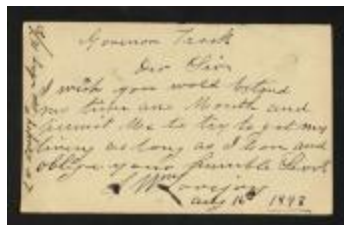 Govenor Trask
Dear Sir
I wish you wold Extend
my time one Month and
permit Me to try to get my
living as long as I can and
oblige yours humble Servt
Wm Lovejoy
Aug 16th 1898